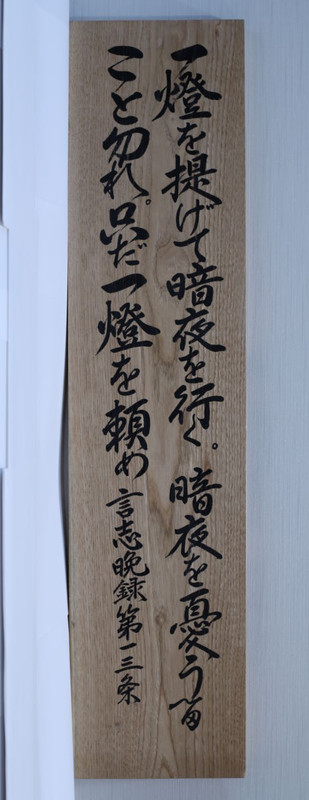 一燈を提げて暗夜を行く。暗夜を憂うる
こと勿れ。只だ一燈を頼め 言志晩録第一三条